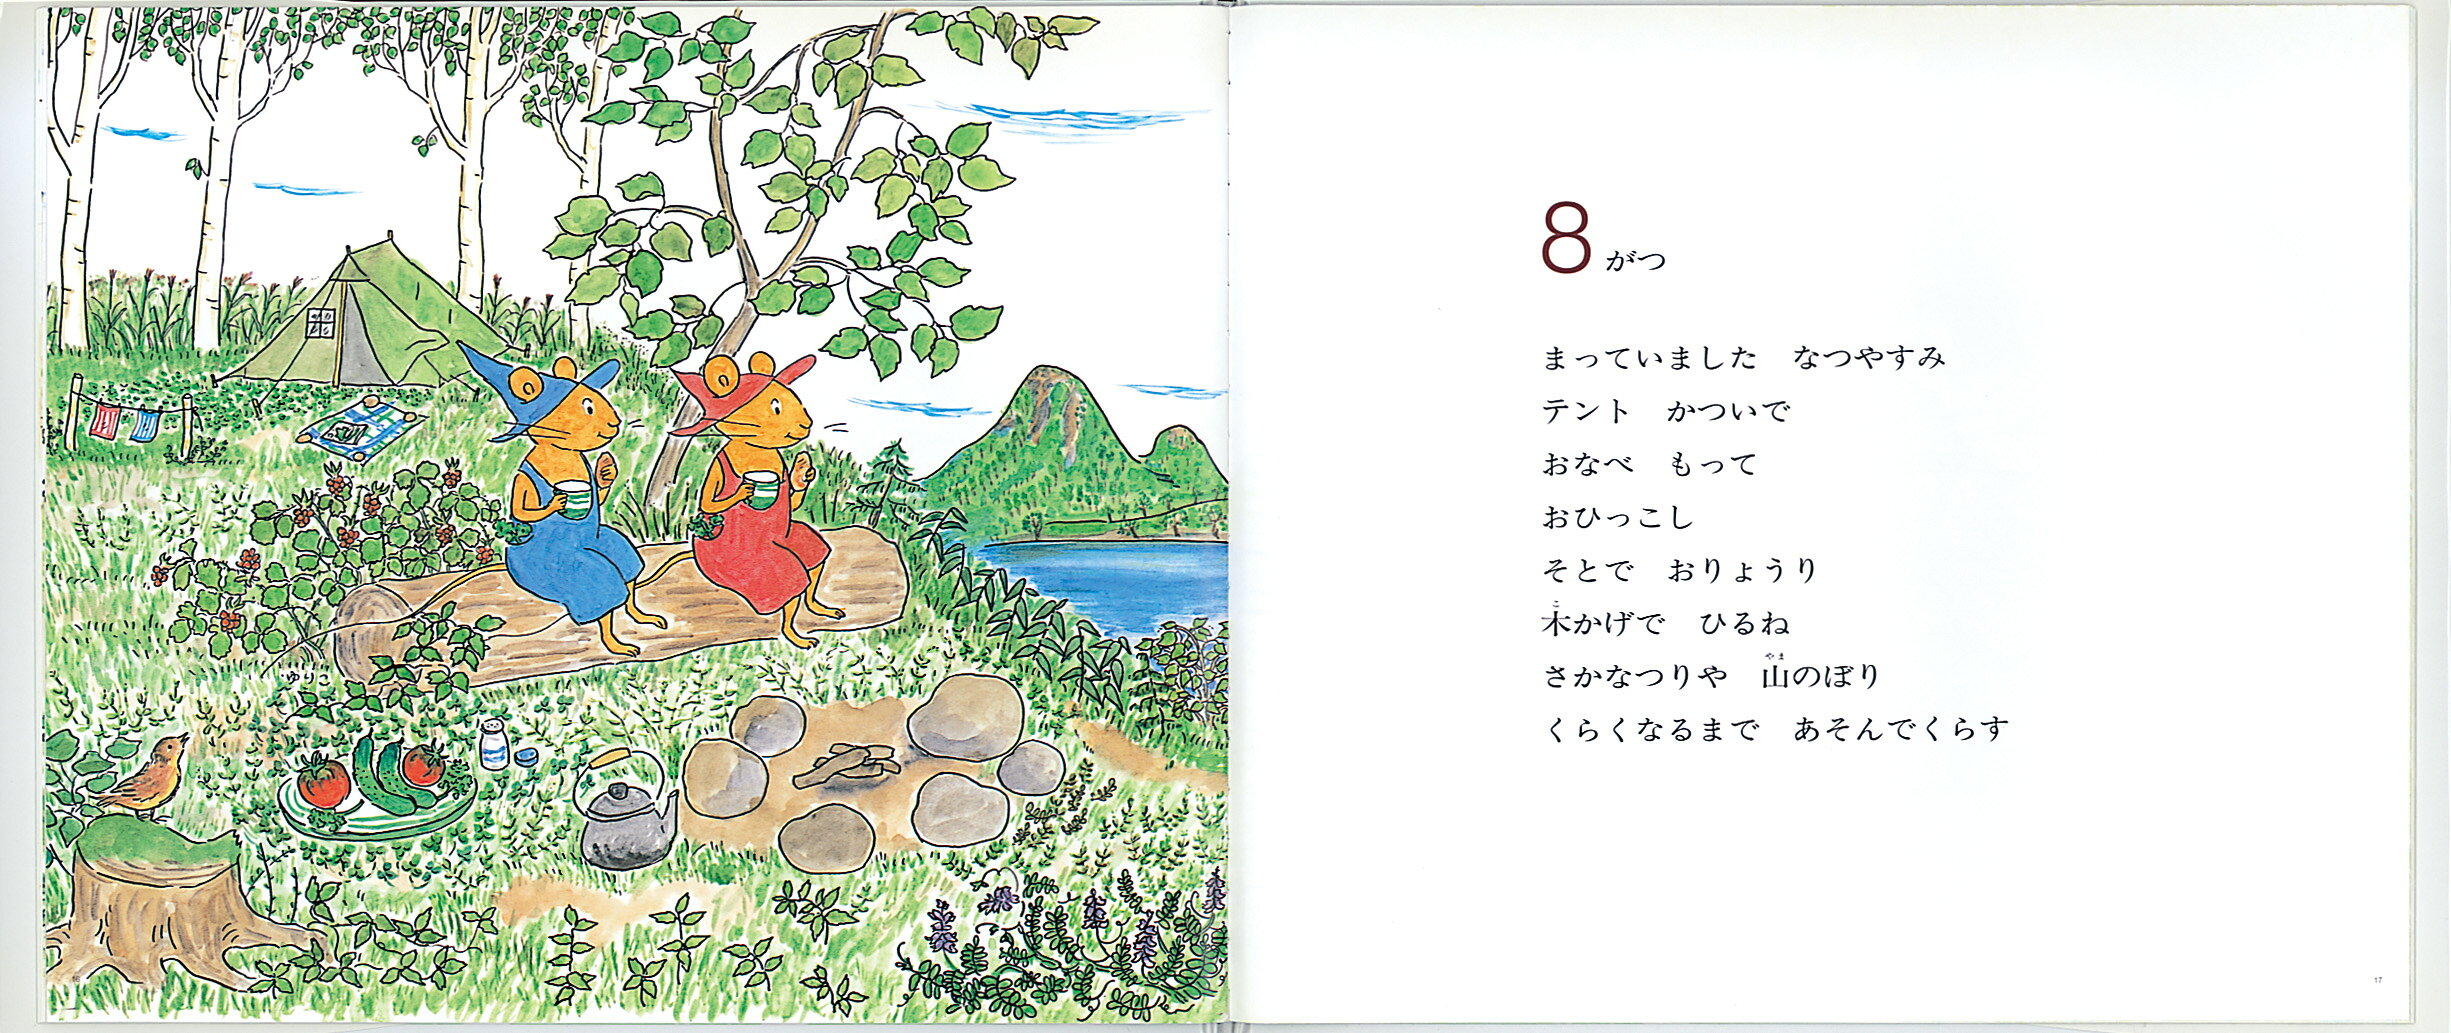 ゆりこ
16
8がつ
まっていました　なつやすみ
テント　かついで
おなべ　もって
おひっこし
そとで　おりょうり
木かげで　ひるね
さかなつりや　山のぼり
くらくなるまで　あそんでくらす
17